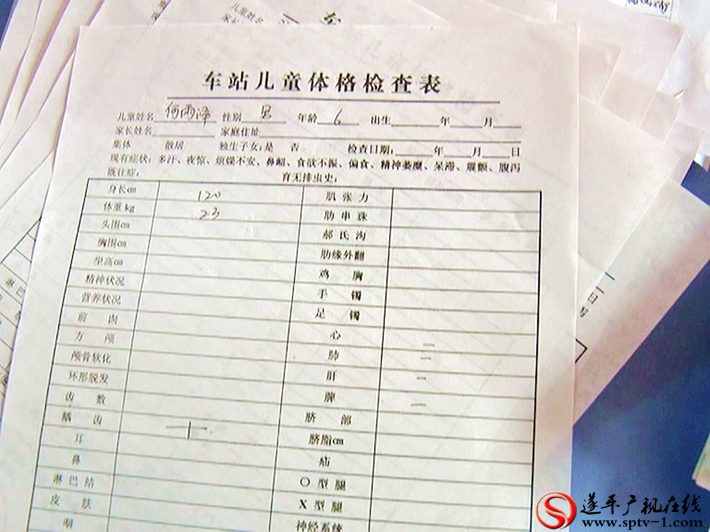 车站儿童体格检查表
儿童姓名 何雨泽 性别 男 年龄 6 出生 年 月
家长姓名 家庭住址
集体 散居 独生子女：是 否 检查日期： 年 月 日
现有症状：多汗、夜惊、烦燥不安、鼻衄、食欲不振、偏食、精神萎靡、呆滞、震颤、腹泻
既往症： 育无排虫史：
身长cm 120 肌张力
体重kg 23 肋串珠
头围cm 郝氏沟
胸围cm 肋缘外翻
坐高cm 鸡胸
精神状况 手镯
营养状况 足镯
前卤 心 —
方颅 肺 —
颅骨软化 肝 —
环形脱发 脾 —
齿数 脐部
龋齿 脐脂cm
耳 疝
鼻 O型腿
淋巴结 X型腿
皮肤 神经系统
咽
遂平广视在线
www.sptv-1.com